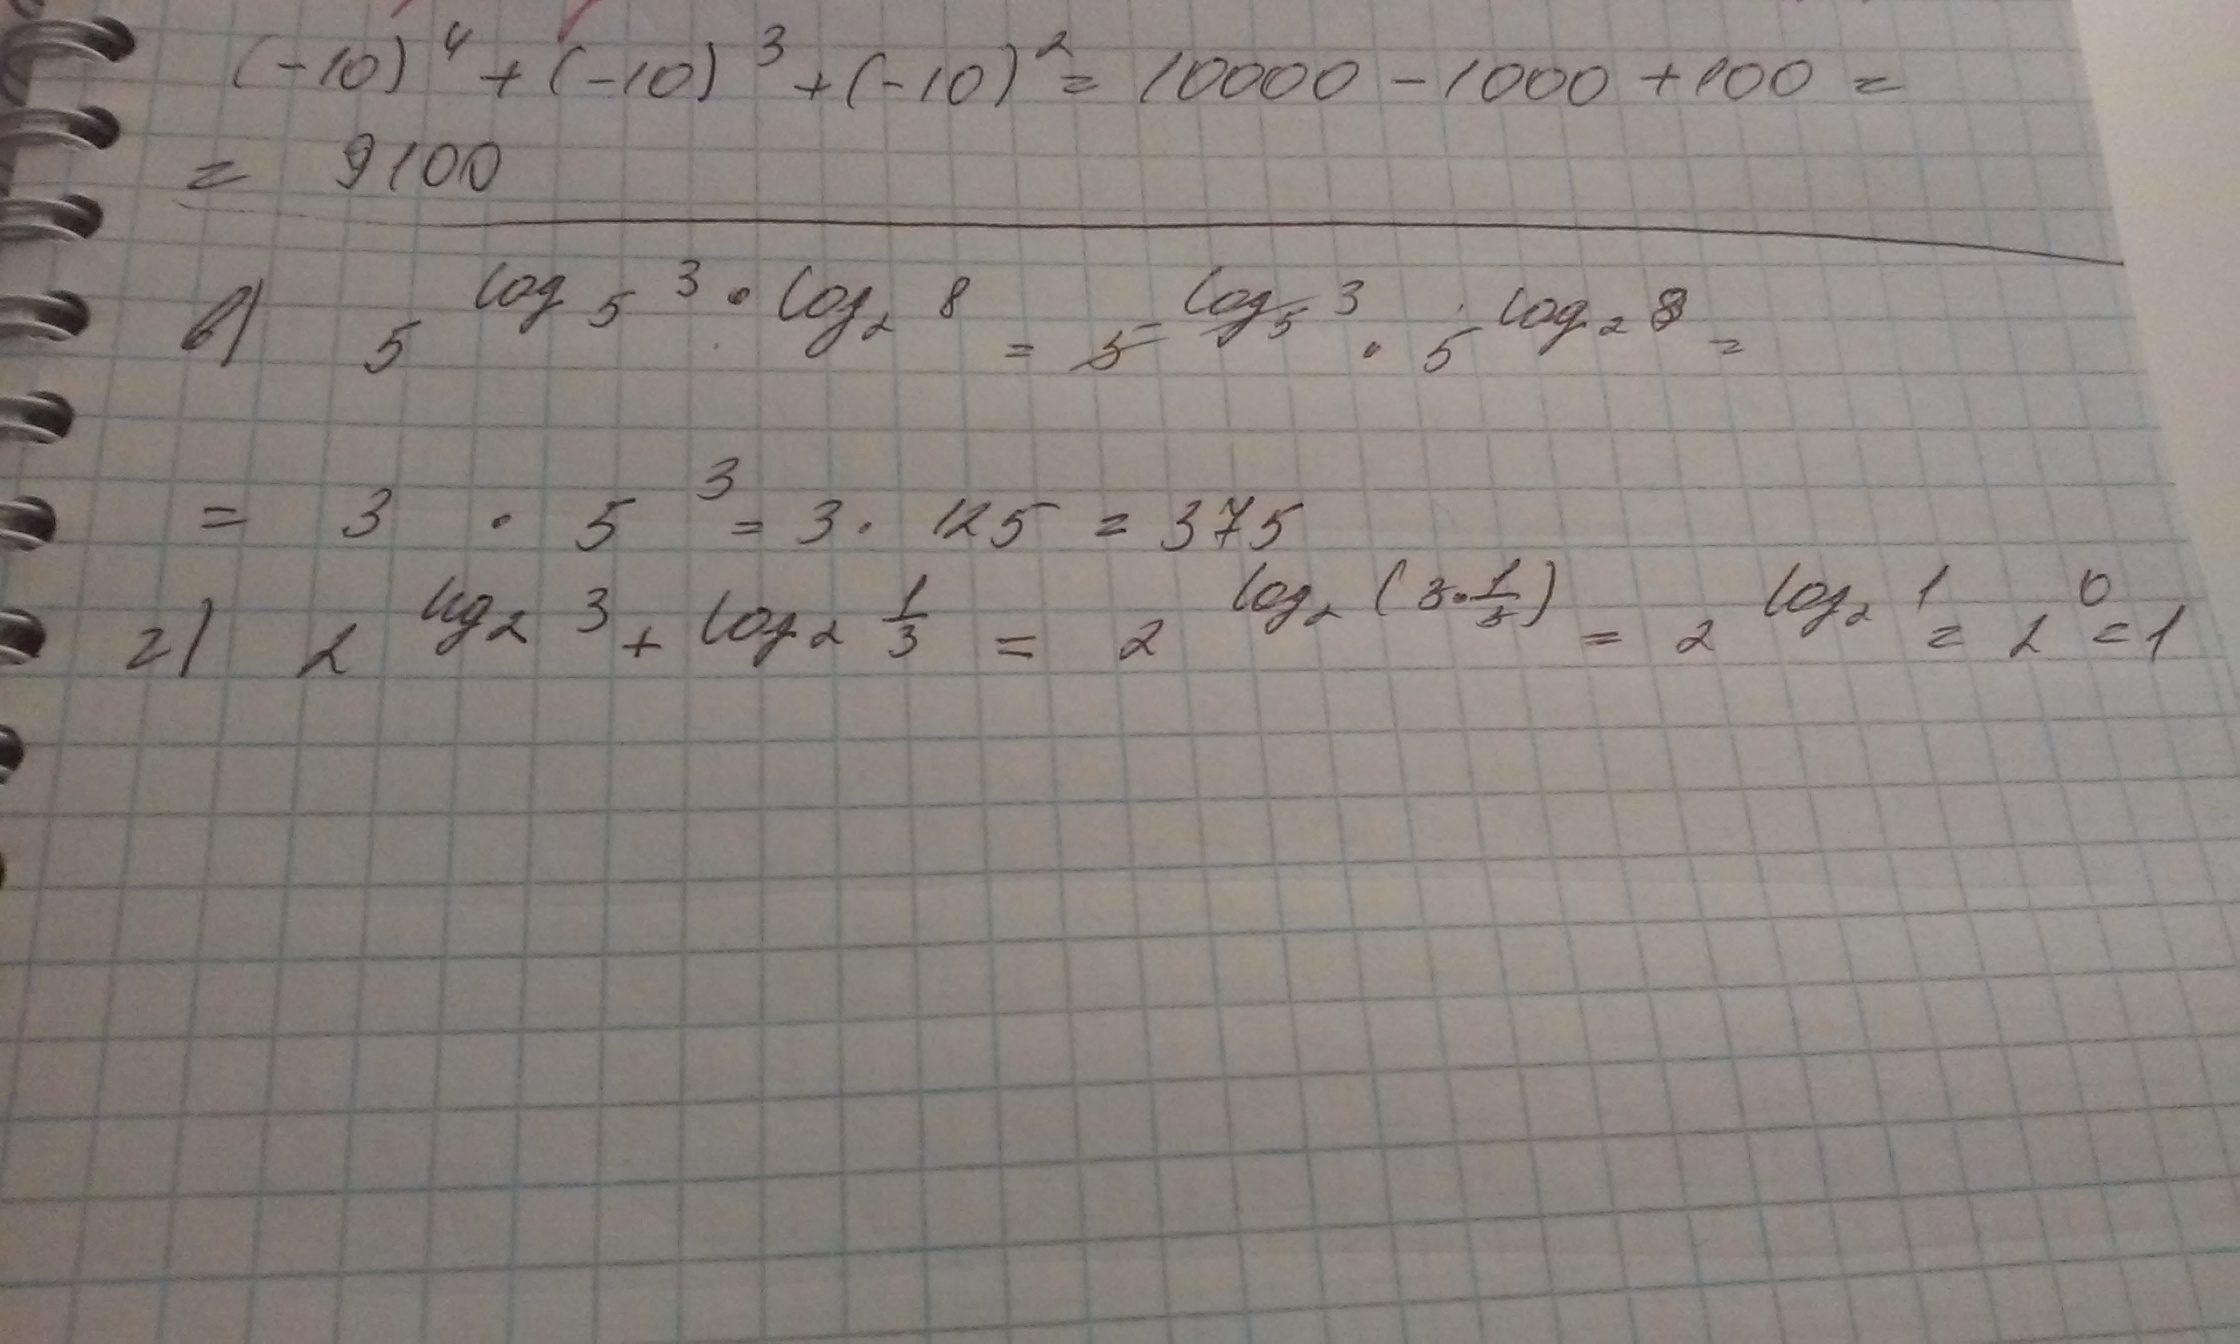 (-10)⁴ + (-10)³ + (-10)² = 10000 - 1000 + 100 =
= 9100
в) 5^(log₅ 3 · log₂ 8) = 5^(log₅ 3) · 5^(log₂ 8) =
= 3 · 5³ = 3 · 125 = 375
г) 2^(log₂ 3 + log₂ 1/3) = 2^(log₂ (3 · 1/3)) = 2^(log₂ 1) = 2⁰ = 1